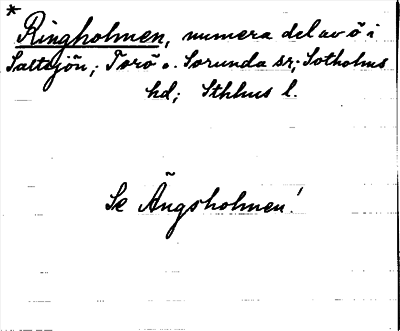 *
Ringholmen, numera del av ö i
Saltsjön; Torö o. Sorunda sr; Sotholms
hd; Sthlms l.
Se Ängsholmen!